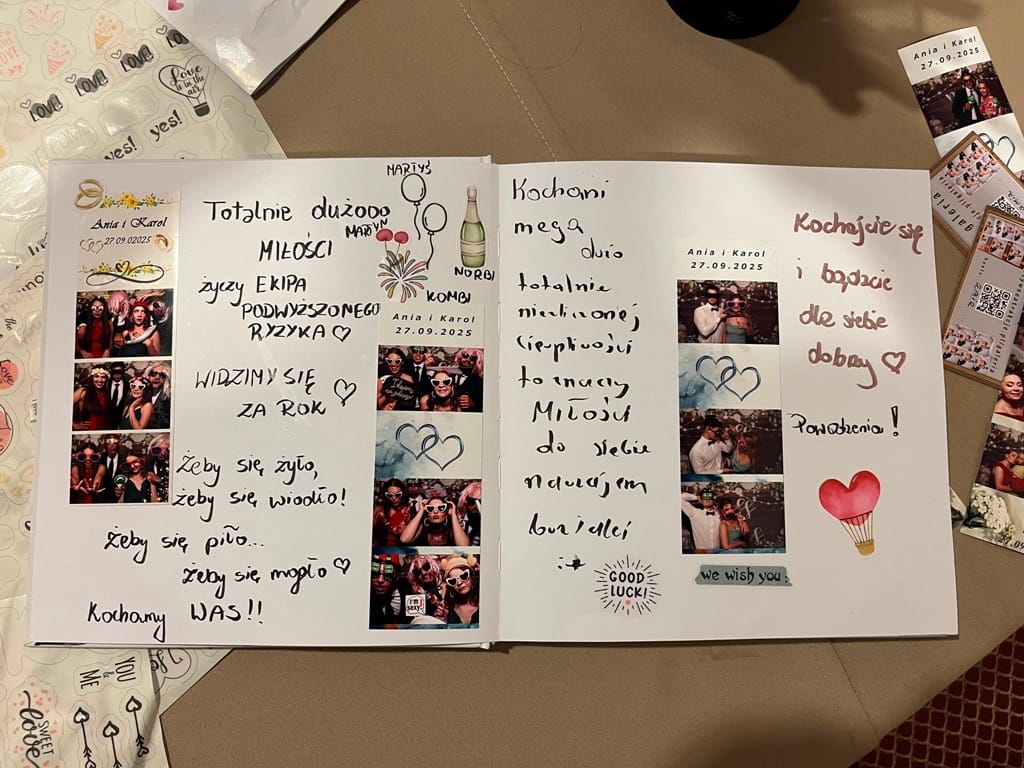 LOVE!
LOVE!
LOVE!
Love
is in the
air
yes!
yes!
Ania i Karol
27.09.02025
Totalnie dużooo
MIŁOŚCI
życzy EKIPA
PODWYŻSZONEGO
RYZYKA ♡
WIDZIMY SIĘ
ZA ROK ♡
Żeby się żyło,
żeby się wiodło!
Żeby się piło...
żeby się mogło ♡
Kochamy WAS!!
MARTYŚ
MARTYN
NORBI
KOMBI
Ania i Karol
27.09.2025
I'm
sexy!
Kochani
mega
dużo
totalnie
niezliczonej
cierpliwości
to mały
Miłości
do siebie
nawzajem
buziolki
:*
GOOD
LUCK!
Ania i Karol
27.09.2025
we wish you:
Kochajcie się
i bądźcie
dla siebie
dobrzy ♡
Powodzenia!
Ania i Karol
27.09.2025
galeria
YOU
&
ME
SWEET
love